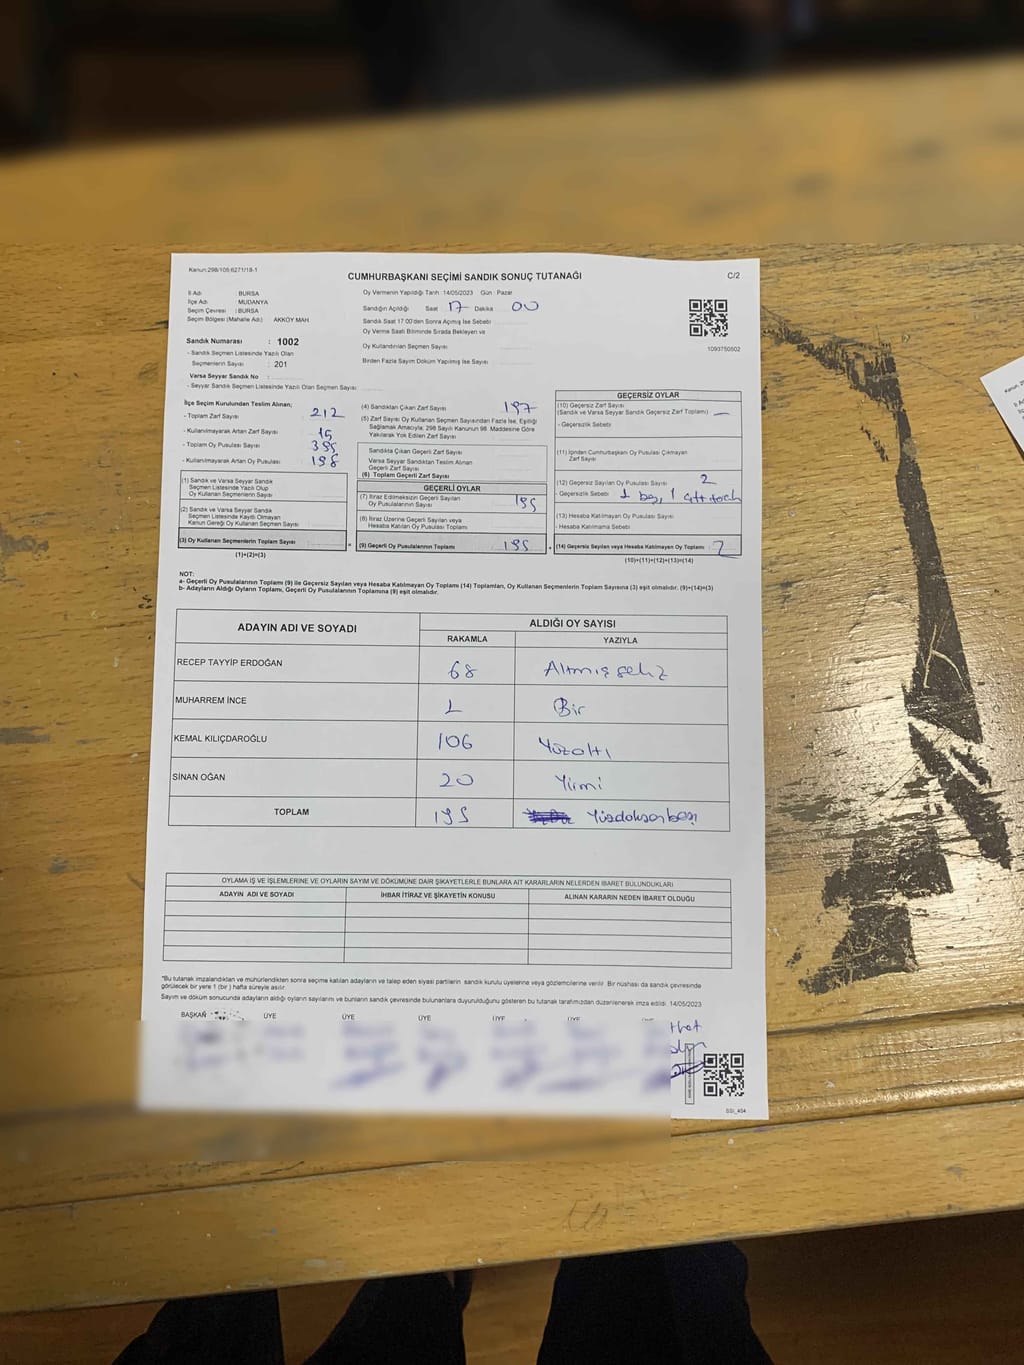 Kanun:298/105:6271/18-1
CUMHURBAŞKANI SEÇİMİ SANDIK SONUÇ TUTANAĞI
C/2
İl Adı : BURSA
İlçe Adı : MUDANYA
Seçim Çevresi : BURSA
Seçim Bölgesi (Mahalle Adı) : AKKÖY MAH.
Oy Vermenin Yapıldığı Tarih :14/05/2023 Gün : Pazar
Sandığın Açıldığı Saat 17 Dakika 00
Sandık Saat 17:00'den Sonra Açılmış İse Sebebi
Oy Verme Saati Bitiminde Sırada Bekleyen ve
Oy Kullandırılan Seçmen Sayısı
Birden Fazla Sayım Döküm Yapılmış İse Sayısı
1093750502
Sandık Numarası : 1002
- Sandık Seçmen Listesinde Yazılı Olan
Seçmenlerin Sayısı : 201
Varsa Seyyar Sandık No :
- Seyyar Sandık Seçmen Listesinde Yazılı Olan Seçmen Sayısı
İlçe Seçim Kurulundan Teslim Alınan;
- Toplam Zarf Sayısı : 212
- Kullanılmayarak Artan Zarf Sayısı : 15
- Toplam Oy Pusulası Sayısı : 395
- Kullanılmayarak Artan Oy Pusulası : 198
(1) Sandık ve Varsa Seyyar Sandık
Seçmen Listesinde Yazılı Olup
Oy Kullanan Seçmenlerin Sayısı
(2) Sandık ve Varsa Seyyar Sandık
Seçmen Listesinde Kayıtlı Olmayan
Kanun Gereği Oy Kullanan Seçmen Sayısı
(3) Oy Kullanan Seçmenlerin Toplam Sayısı
(1)+(2)=(3)
(4) Sandıktan Çıkan Zarf Sayısı 197
(5) Zarf Sayısı Oy Kullanan Seçmen Sayısından Fazla İse, Eşitliği
Sağlamak Amacıyla; 298 Sayılı Kanunun 98. Maddesine Göre
Yakılarak Yok Edilen Zarf Sayısı
Sandıkta Çıkan Geçerli Zarf Sayısı
Varsa Seyyar Sandıktan Teslim Alınan
Geçerli Zarf Sayısı
(6) Toplam Geçerli Zarf Sayısı
GEÇERLİ OYLAR
(7) İtiraz Edilmeksizin Geçerli Sayılan
Oy Pusulalarının Sayısı 195
(8) İtiraz Üzerine Geçerli Sayılan veya
Hesaba Katılan Oy Pusulası Toplamı
= (9) Geçerli Oy Pusulalarının Toplamı 195
GEÇERSİZ OYLAR
(10) Geçersiz Zarf Sayısı
(Sandık ve Varsa Seyyar Sandık Geçersiz Zarf Toplamı) —
- Geçersizlik Sebebi
(11) İçinden Cumhurbaşkanı Oy Pusulası Çıkmayan
Zarf Sayısı
(12) Geçersiz Sayılan Oy Pusulası Sayısı : 2
- Geçersizlik Sebebi 1 boş, 1 çift
(13) Hesaba Katılmayan Oy Pusulası Sayısı
- Hesaba Katılmama Sebebi
+ (14) Geçersiz Sayılan veya Hesaba Katılmayan Oy Toplamı : 2
(10)+(11)+(12)+(13)=(14)
NOT:
a- Geçerli Oy Pusulalarının Toplamı (9) ile Geçersiz Sayılan veya Hesaba Katılmayan Oy Toplamı (14) Toplamları, Oy Kullanan Seçmenlerin Toplam Sayısına (3) eşit olmalıdır. (9)+(14)=(3)
b- Adayların Aldığı Oyların Toplamı, Geçerli Oy Pusulalarının Toplamına (9) eşit olmalıdır.
ADAYIN ADI VE SOYADI
ALDIĞI OY SAYISI
RAKAMLA YAZIYLA
RECEP TAYYİP ERDOĞAN 68 Altmışsekiz
MUHARREM İNCE 1 Bir
KEMAL KILIÇDAROĞLU 106 Yüzaltı
SİNAN OĞAN 20 Yirmi
TOPLAM 195 Yüzdoksanbeş
OYLAMA İŞ VE İŞLEMLERİNE VE OYLARIN SAYIM VE DÖKÜMÜNE DAİR ŞİKAYETLERLE BUNLARA AİT KARARLARIN NELERDEN İBARET BULUNDUKLARI
ADAYIN ADI VE SOYADI İHBAR İTİRAZ VE ŞİKAYETİN KONUSU ALINAN KARARIN NEDEN İBARET OLDUĞU
*Bu tutanak imzalandıktan ve mühürlendikten sonra seçime katılan adayların ve talep eden siyasi partilerin sandık kurulu üyelerine veya gözlemcilerine verilir. Bir nüshası da sandık çevresinde
görülecek bir yere 1 (bir ) hafta süreyle asılır.
Sayım ve döküm sonucunda adayların aldığı oyların sayılarını ve bunların sandık çevresinde bulunanlara duyurulduğunu gösteren bu tutanak tarafımızdan düzenlenerek imza edildi. 14/05/2023
BAŞKAN ÜYE ÜYE ÜYE ÜYE ÜYE ÜYE
SSI_404